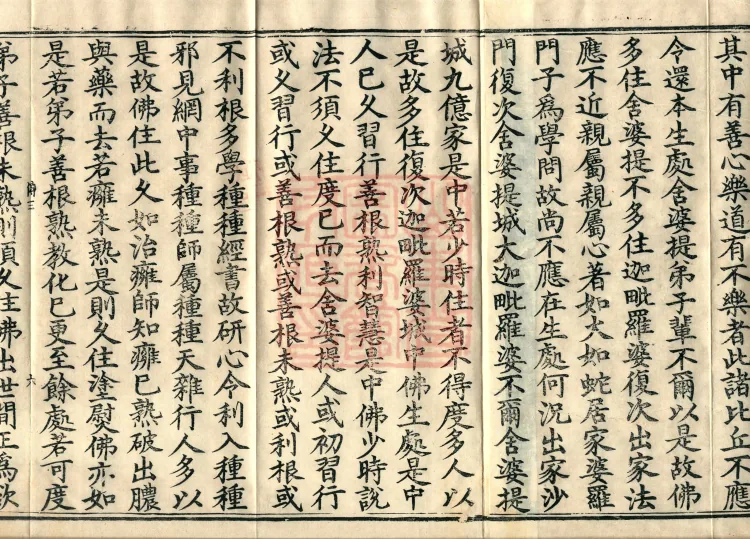 其中有善心樂道有不樂者此諸比丘不應
令還本生處舍婆提弟子輩不爾以是故佛
多住舍婆提不多住迦毗羅婆復次出家法
應不近親屬親屬心著如火如蛇居家婆羅
門子爲學問故尚不應在生處何況出家沙
門復次舍婆提城大迦毗羅婆不爾舍婆提
城九億家是中若少時住者不得度多人以
是故多住復次迦毗羅婆城中佛生處是中
人已久習行善根熟利智慧是中佛少時說
法不須久住度已而去舍婆提人或初習行
或久習行或善根熟或善根未熟或利根或
不利根多學種種經書故研心令利入種種
邪見網中事種種師屬種種天雜行人多以
是故佛住此久如治癰師知癰已熟破出膿
與藥而去若癰未熟是則久住塗熨佛亦如
是若弟子善根熟教化已更至餘處若可度
弟子善根未熟則須久住佛出世間正爲欲
六